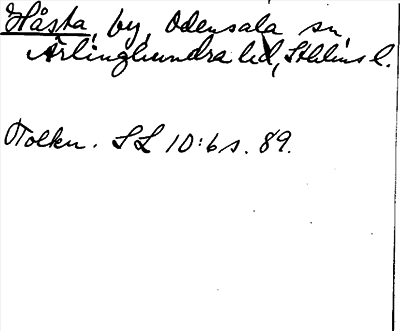 Håsta, by, Odensala sn,
Ärlinghundra hd, Sthlms l.
Tolkn. SL 10:6 s. 89.